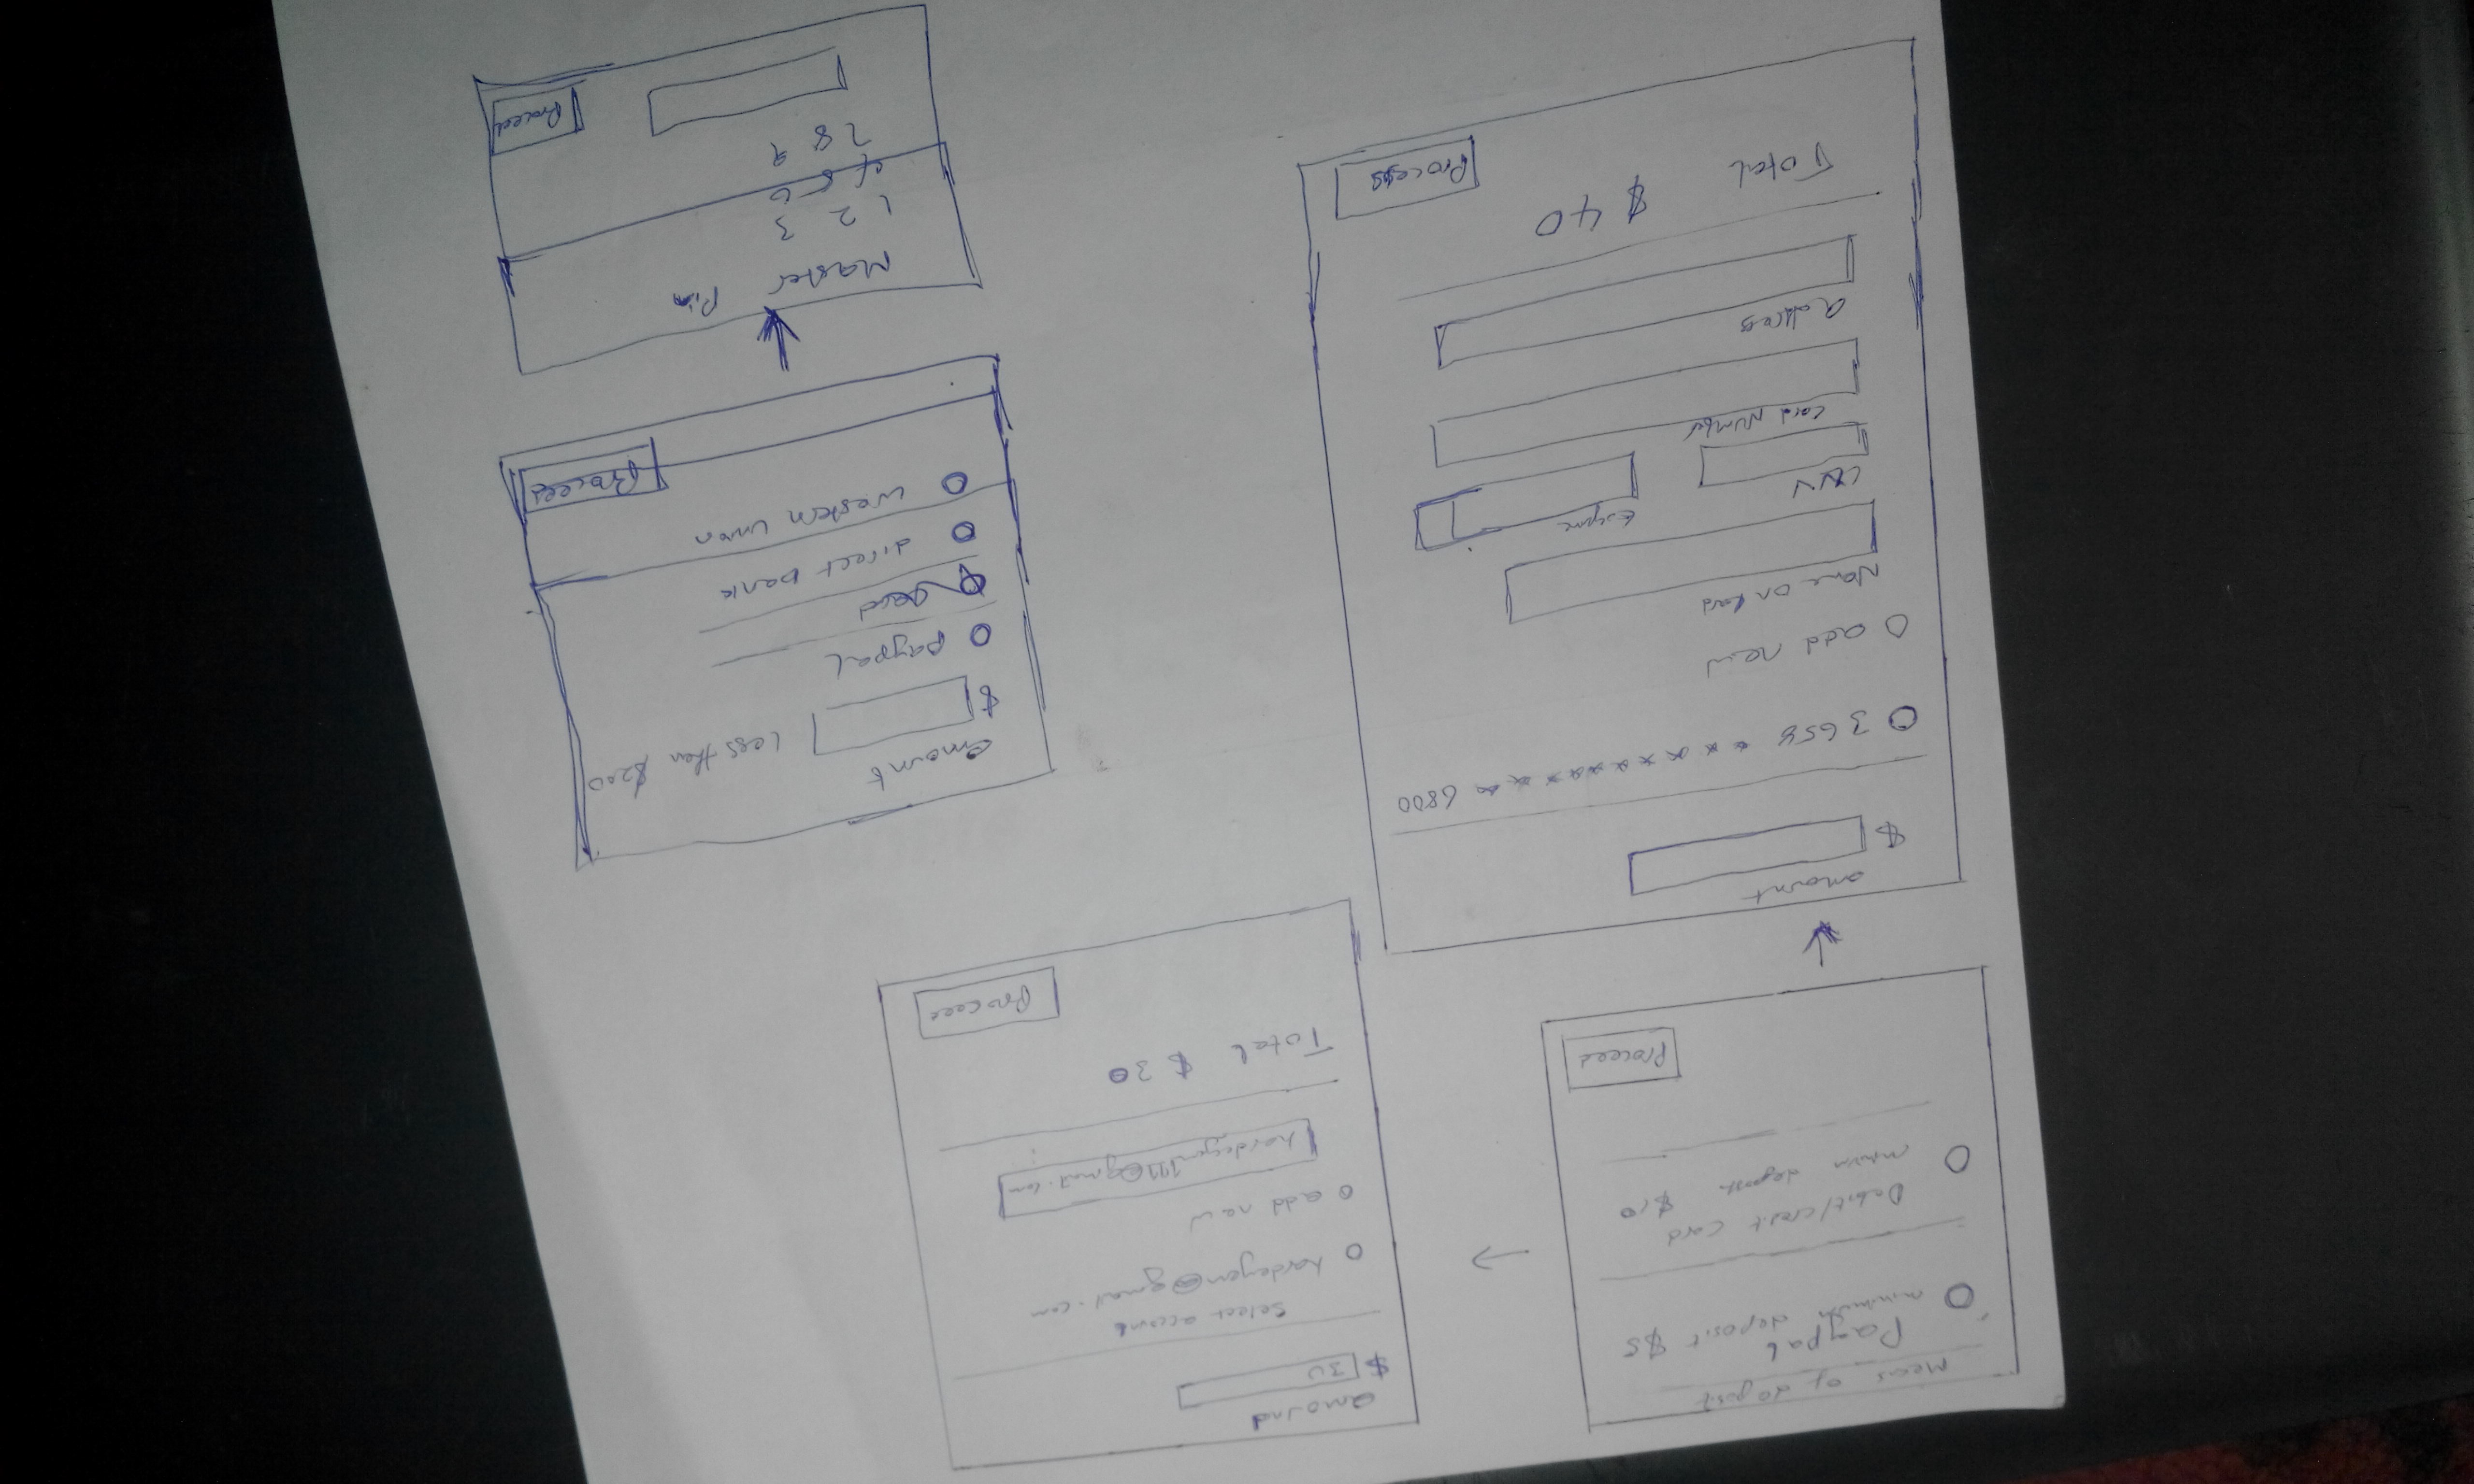 Means of deposit
Paypal
minimum deposit $5
Debit/credit card
minimum deposit $10
Proceed
amound
$ 30
Select account
hardeyem@gmail.com
add new
hardeyem111@gmail.com
Total $ 30
Proceed
amount
$
3658 * * * * * * * * * * * 6800
add new
Name on Card
CVV
Expire
Card Number
address
Total $ 40
Process
amount
$ less then $200
paypal
card
direct bank
western union
Proceed
Master Pin
1 2 3
4 5 6
7 8 9
Proceed